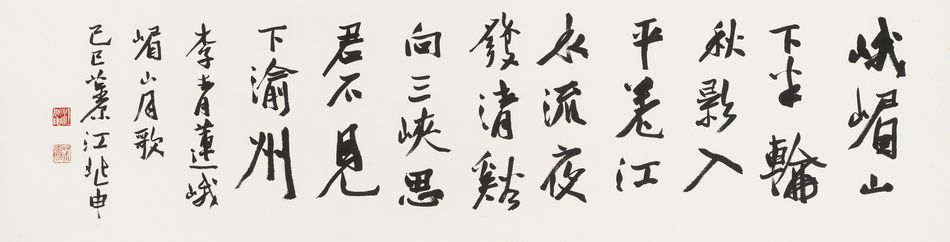 峨嵋山
下半輪
秋影入
平羌江
水流夜
發清谿
向三峽思
君不見
下渝州
李青蓮峨
嵋山月歌
己巳 江兆申